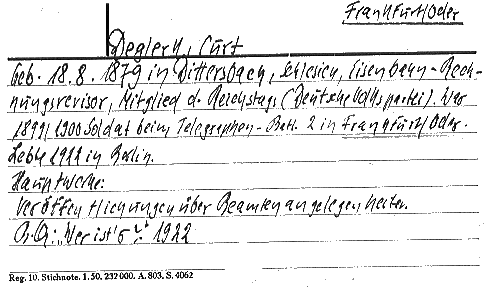 Frankfurt/Oder
Deglerk, Curt
Geb. 18.8.1879 in Dittersbach, Schlesien, Eisenbahn-Rech-
nungsrevisor, Mitglied d. Reichstags (Deutsche Volkspartei). War
1899/1900 Soldat beim Telegraphen-Batl. 2 in Frankfurt/Oder.
Lebte 1922 in Berlin.
Hauptwerke:
Veröffentlichungen über Beamtenangelegenheiten.
B.Q.: "Wer ist's" 1922
Reg. 10. Stichnote. 1. 50. 232000. A. 803. S. 4062